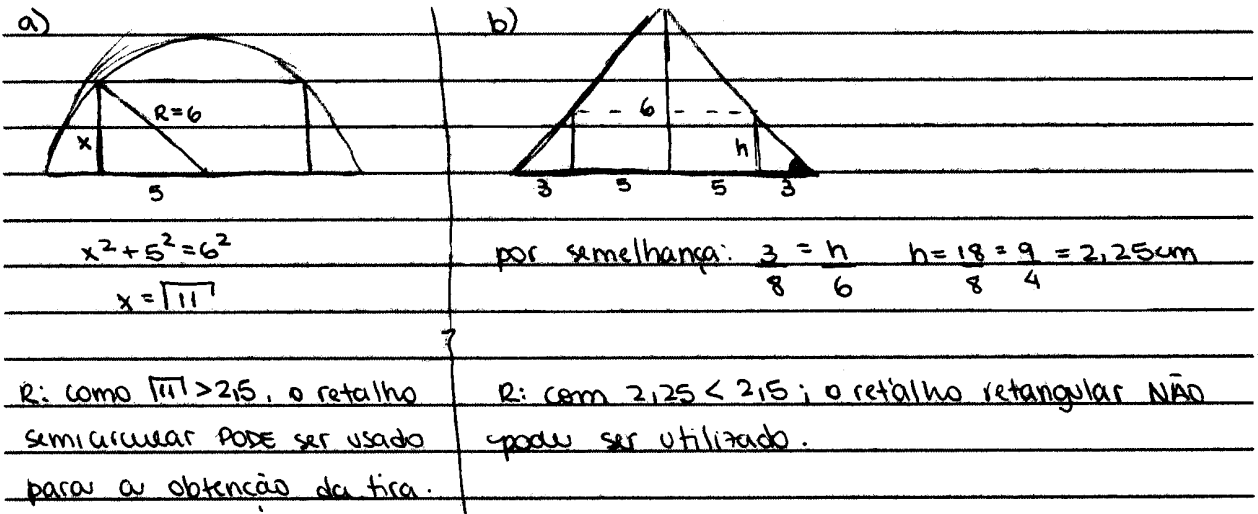 a)
R=6
x
5
x² + 5² = 6²
x = √11
R: como √11 > 2,5, o retalho
semicircular PODE ser usado
para a obtenção da tira.
b)
6
h
3 5 5 3
por semelhança: 3/8 = h/6 h = 18/8 = 9/4 = 2,25cm
R: com 2,25 < 2,5; o retalho retangular NÃO
pode ser utilizado.